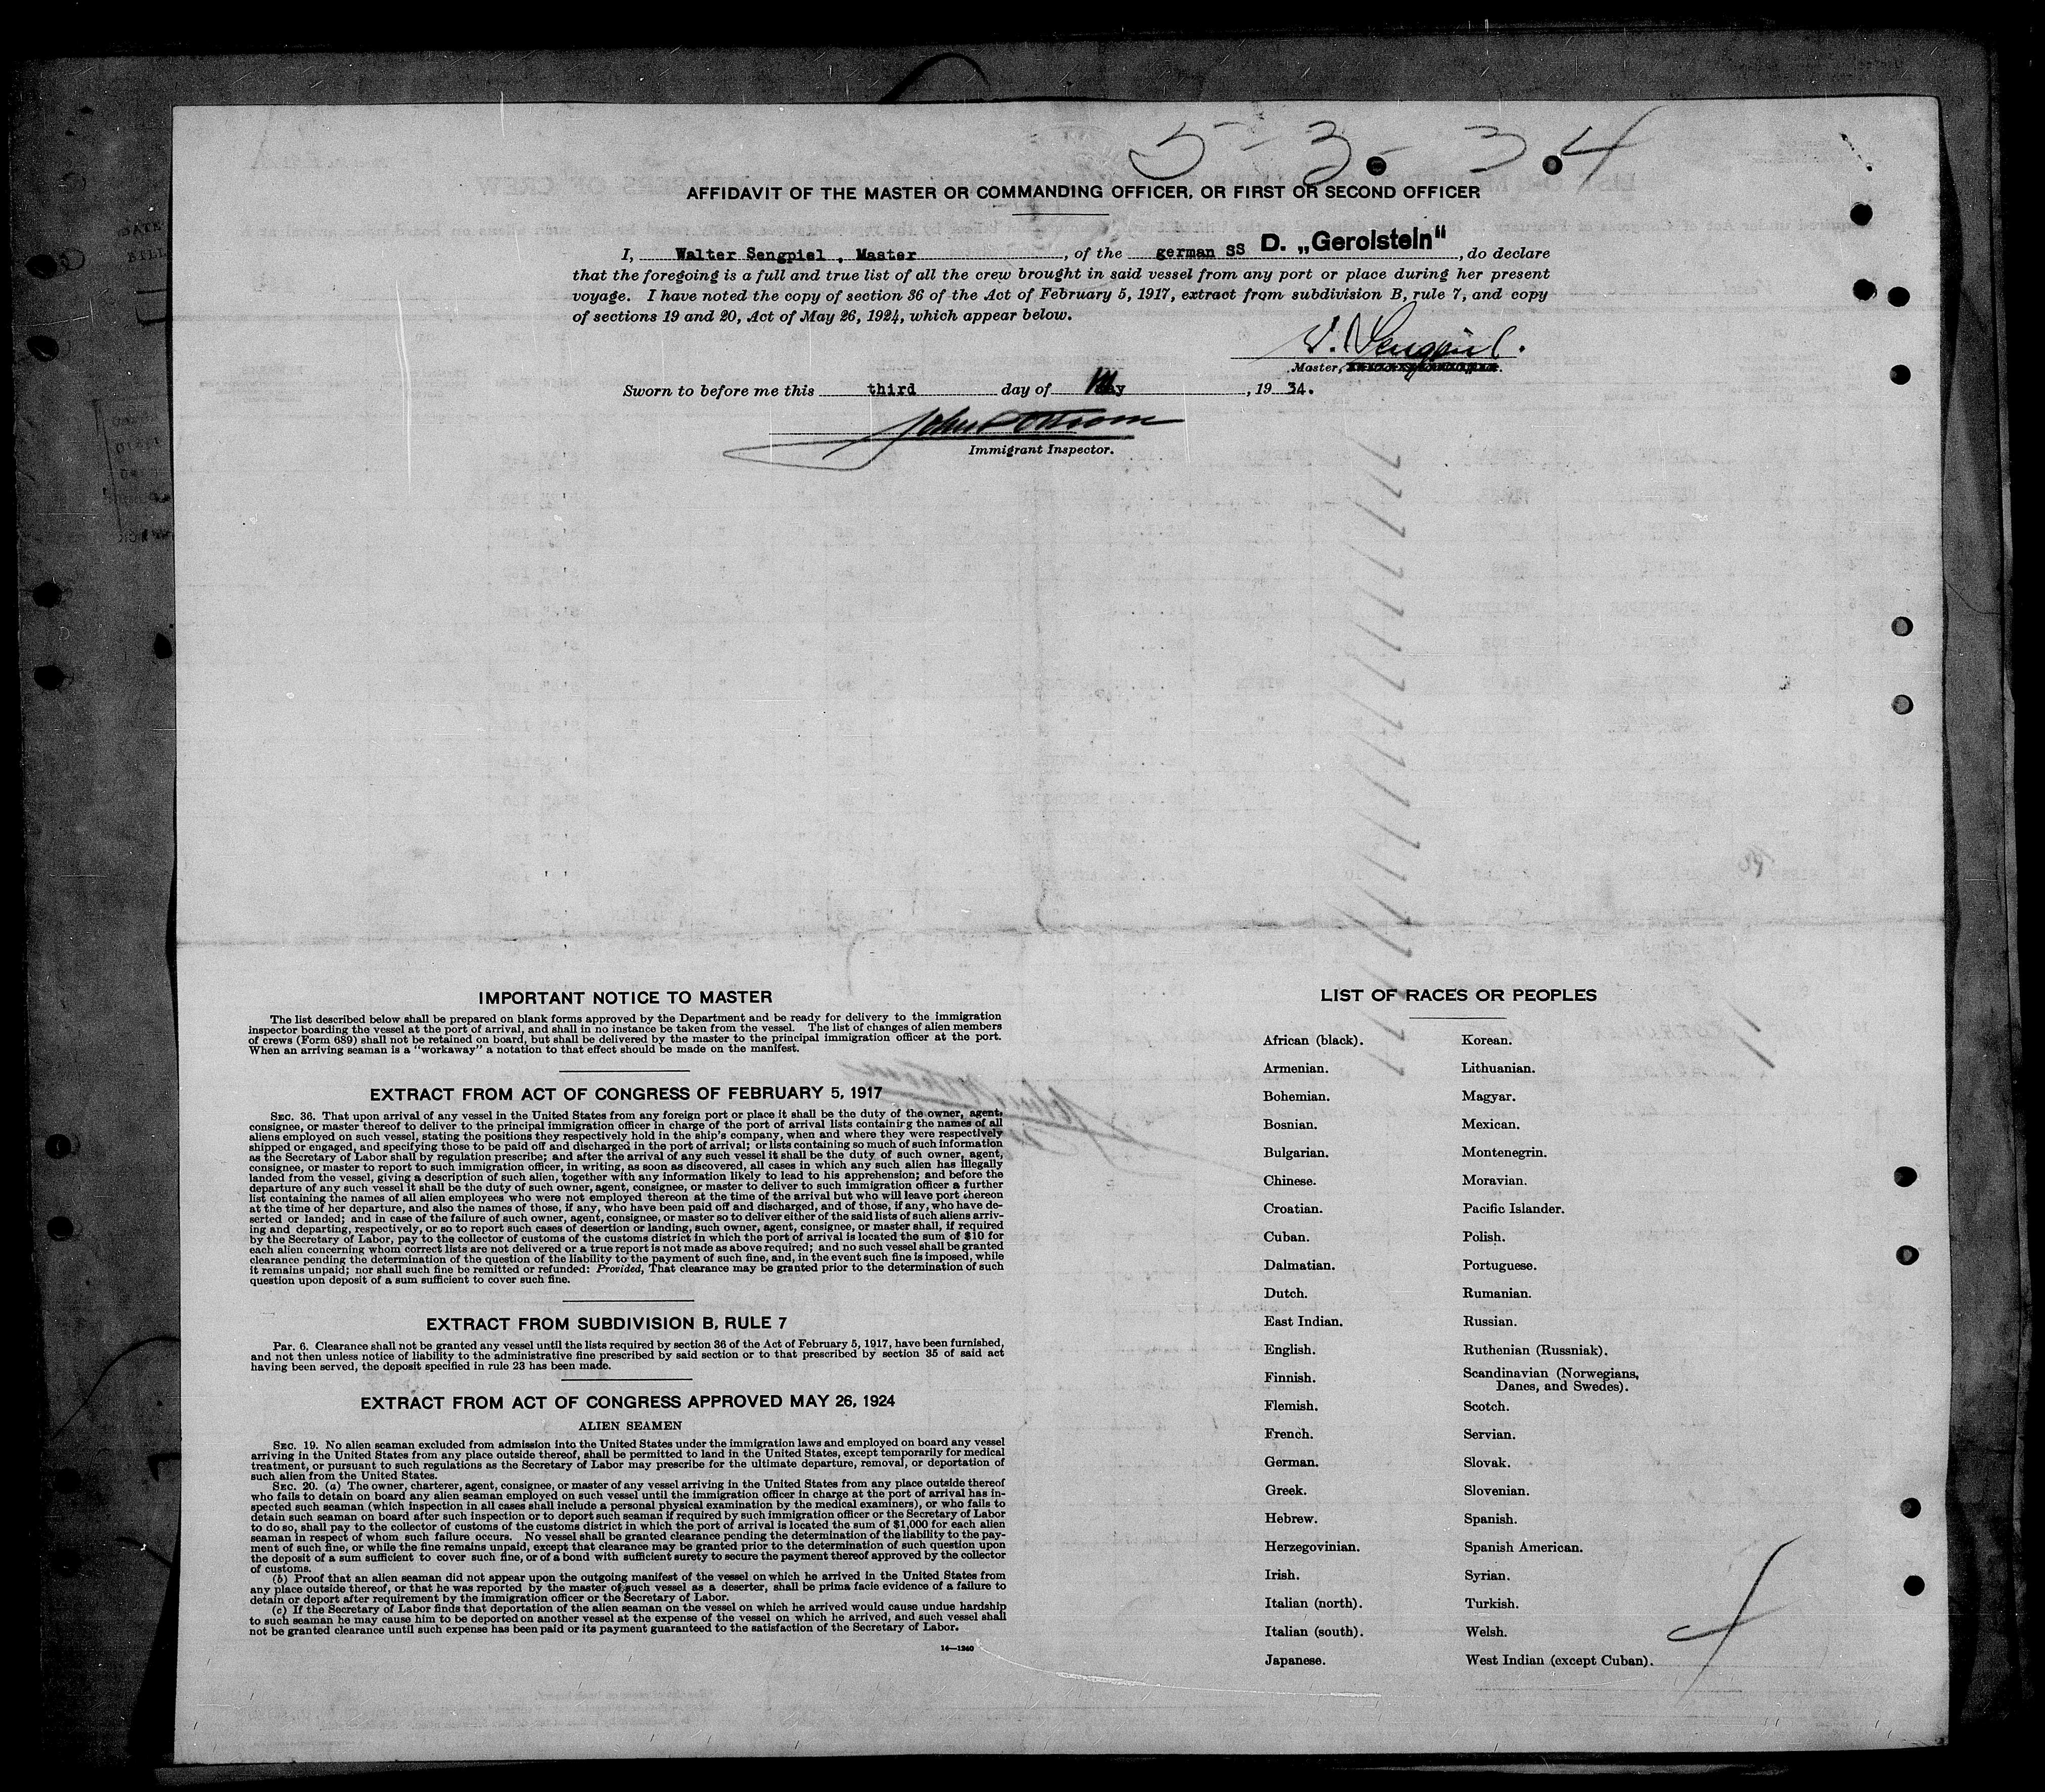 5-3-34
AFFIDAVIT OF THE MASTER OR COMMANDING OFFICER, OR FIRST OR SECOND OFFICER
I, Walter Sengpiel , Master, of the german SS D. „Gerolstein“, do declare
that the foregoing is a full and true list of all the crew brought in said vessel from any port or place during her present
voyage. I have noted the copy of section 36 of the Act of February 5, 1917, extract from subdivision B, rule 7, and copy
of sections 19 and 20, Act of May 26, 1924, which appear below.
W. Sengpiel.
Master,
Sworn to before me this third day of May, 19 34.
Immigrant Inspector.
IMPORTANT NOTICE TO MASTER
The list described below shall be prepared on blank forms approved by the Department and be ready for delivery to the immigration
inspector boarding the vessel at the port of arrival, and shall in no instance be taken from the vessel. The list of changes of alien members
of crews (Form 689) shall not be retained on board, but shall be delivered by the master to the principal immigration officer at the port.
When an arriving seaman is a "workaway" a notation to that effect should be made on the manifest.
EXTRACT FROM ACT OF CONGRESS OF FEBRUARY 5, 1917
SEC. 36. That upon arrival of any vessel in the United States from any foreign port or place it shall be the duty of the owner, agent,
consignee, or master thereof to deliver to the principal immigration officer in charge of the port of arrival lists containing the names of all
aliens employed on such vessel, stating the positions they respectively hold in the ship's company, when and where they were respectively
shipped or engaged, and specifying those to be paid off and discharged in the port of arrival; or lists containing so much of such information
as the Secretary of Labor shall by regulation prescribe; and after the arrival of any such vessel it shall be the duty of such owner, agent,
consignee, or master to report to such immigration officer, in writing, as soon as discovered, all cases in which any such alien has illegally
landed from the vessel, giving a description of such alien, together with any information likely to lead to his apprehension; and before the
departure of any such vessel it shall be the duty of such owner, agent, consignee, or master to deliver to such immigration officer a further
list containing the names of all alien employees who were not employed thereon at the time of the arrival but who will leave port thereon
at the time of her departure, and also the names of those, if any, who have been paid off and discharged, and of those, if any, who have de-
serted or landed; and in case of the failure of such owner, agent, consignee, or master so to deliver either of the said lists of such aliens arriv-
ing and departing, respectively, or so to report such cases of desertion or landing, such owner, agent, consignee, or master shall, if required
by the Secretary of Labor, pay to the collector of customs of the customs district in which the port of arrival is located the sum of $10 for
each alien concerning whom correct lists are not delivered or a true report is not made as above required; and no such vessel shall be granted
clearance pending the determination of the question of the liability to the payment of such fine, and, in the event such fine is imposed, while
it remains unpaid; nor shall such fine be remitted or refunded: Provided, That clearance may be granted prior to the determination of such
question upon deposit of a sum sufficient to cover such fine.
EXTRACT FROM SUBDIVISION B, RULE 7
PAR. 6. Clearance shall not be granted any vessel until the lists required by section 36 of the Act of February 5, 1917, have been furnished,
and not then unless notice of liability to the administrative fine prescribed by said section or to that prescribed by section 35 of said act
having been served, the deposit specified in rule 23 has been made.
EXTRACT FROM ACT OF CONGRESS APPROVED MAY 26, 1924
ALIEN SEAMEN
SEC. 19. No alien seaman excluded from admission into the United States under the immigration laws and employed on board any vessel
arriving in the United States from any place outside thereof, shall be permitted to land in the United States, except temporarily for medical
treatment, or pursuant to such regulations as the Secretary of Labor may prescribe for the ultimate departure, removal, or deportation of
such alien from the United States.
SEC. 20. (a) The owner, charterer, agent, consignee, or master of any vessel arriving in the United States from any place outside thereof
who fails to detain on board any alien seaman employed on such vessel until the immigration officer in charge at the port of arrival has in-
spected such seaman (which inspection in all cases shall include a personal physical examination by the medical examiners), or who fails to
detain such seaman on board after such inspection or to deport such seaman if required by such immigration officer or the Secretary of Labor
to do so, shall pay to the collector of customs of the customs district in which the port of arrival is located the sum of $1,000 for each alien
seaman in respect of whom such failure occurs. No vessel shall be granted clearance pending the determination of the liability to the pay-
ment of such fine, or while the fine remains unpaid, except that clearance may be granted prior to the determination of such question upon
the deposit of a sum sufficient to cover such fine, or of a bond with sufficient surety to secure the payment thereof approved by the collector
of customs.
(b) Proof that an alien seaman did not appear upon the outgoing manifest of the vessel on which he arrived in the United States from
any place outside thereof, or that he was reported by the master of such vessel as a deserter, shall be prima facie evidence of a failure to
detain or deport after requirement by the immigration officer or the Secretary of Labor.
(c) If the Secretary of Labor finds that deportation of the alien seaman on the vessel on which he arrived would cause undue hardship
to such seaman he may cause him to be deported on another vessel at the expense of the vessel on which he arrived, and such vessel shall
not be granted clearance until such expense has been paid or its payment guaranteed to the satisfaction of the Secretary of Labor.
14—1240
LIST OF RACES OR PEOPLES
African (black). Korean.
Armenian. Lithuanian.
Bohemian. Magyar.
Bosnian. Mexican.
Bulgarian. Montenegrin.
Chinese. Moravian.
Croatian. Pacific Islander.
Cuban. Polish.
Dalmatian. Portuguese.
Dutch. Rumanian.
East Indian. Russian.
English. Ruthenian (Russniak).
Finnish. Scandinavian (Norwegians,
Danes, and Swedes).
Flemish. Scotch.
French. Servian.
German. Slovak.
Greek. Slovenian.
Hebrew. Spanish.
Herzegovinian. Spanish American.
Irish. Syrian.
Italian (north). Turkish.
Italian (south). Welsh.
Japanese. West Indian (except Cuban).